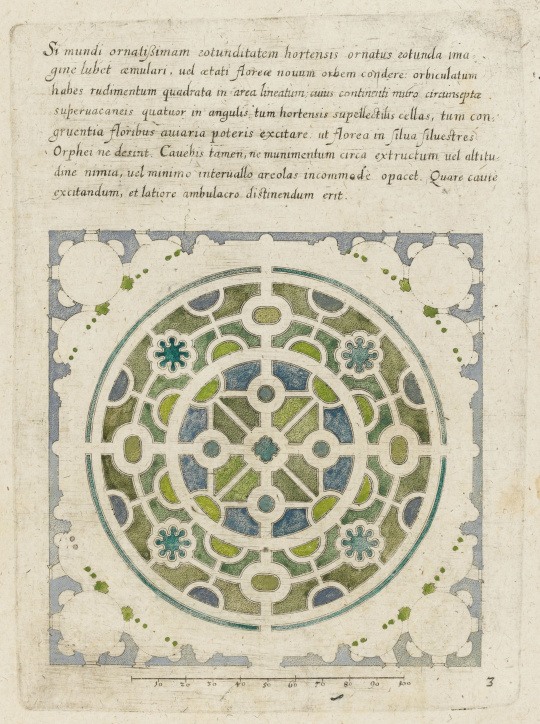 Si mundi ornatißimam rotunditatem hortensis ornatus rotunda ima=
gine lubet æmulari, uel ætati floreæ nouum orbem condere: orbiculatum
habes rudimentum quadrata in area lineatum, cuius continenti muro circunseptæ
superuacaneis quatuor in angulis, tum hortensis supellectilis cellas, tum con=
gruentia floribus auiaria poteris excitare. ut florea in silua siluestres
Orphei ne desint. Cauebis tamen, ne munimentum circa extructum uel altitu=
dine nimia, uel minimo interuallo areolas incommode opacet. Quare caute
excitandum, et latiore ambulacro distinendum erit.
10 20 30 40 50 60 70 80 90 100
3